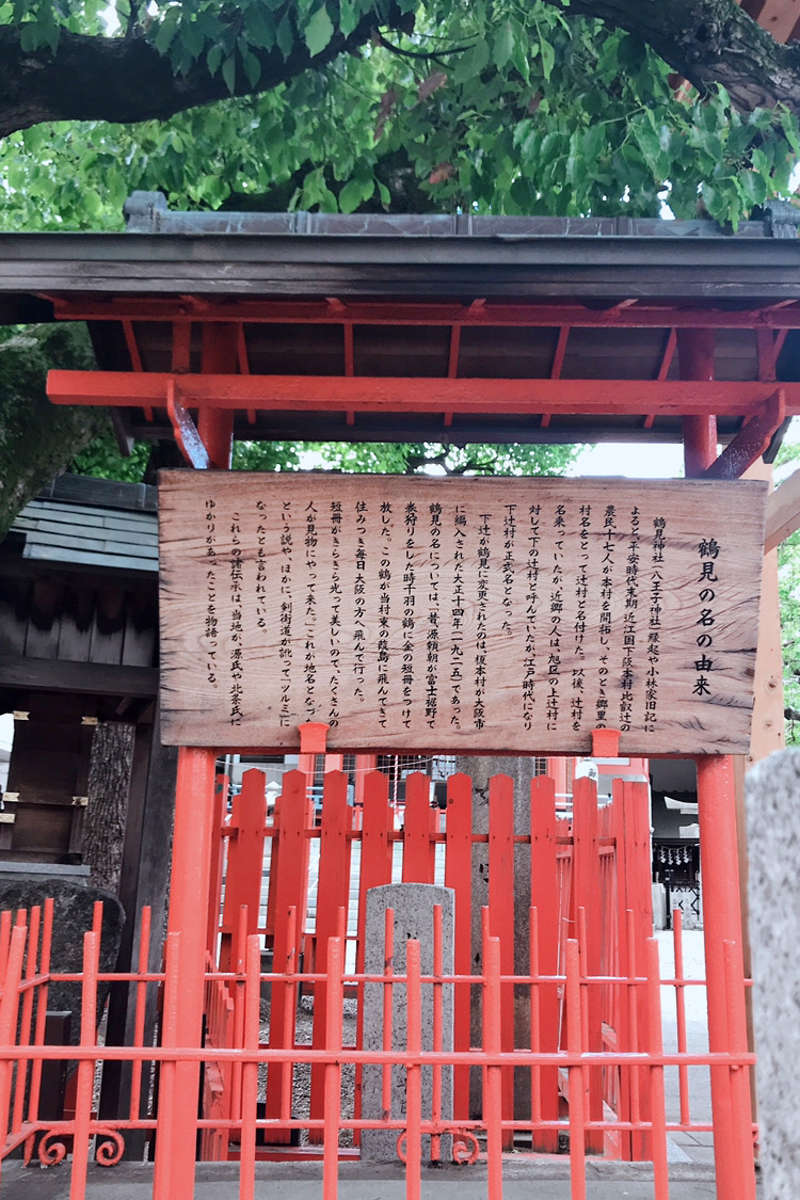 鶴見の名の由来
鶴見神社(八王子神社)縁起や小林家旧記に
よると、平安時代末期、近江国下阪本村比叡辻の
農民十七人が本村を開拓し、そのとき郷里の
村名をとって辻村と名付けた。以後、辻村を
名乗っていたが、近郷の人は、旭区の上辻村に
対して下の辻村と呼んでいたが、江戸時代になり
下辻村が正式名となった。
下辻が鶴見に変更されたのは、榎本村が大阪市
に編入された大正十四年(一九二五)であった。
鶴見の名については、昔、源頼朝が富士裾野で
巻狩りをした時千羽の鶴に金の短冊をつけて
放した。この鶴が当村東の葭島に飛んできて
住みつき毎日大阪の方へ飛んで行った。
短冊がきらきら光って美しいので、たくさんの
人が見物にやって来た。これが地名となった
という説や、ほかに、剣街道が訛って「ツルミ」に
なったとも言われている。
これらの諸伝承は、当地が、源氏や北条氏に
ゆかりがあったことを物語っている。